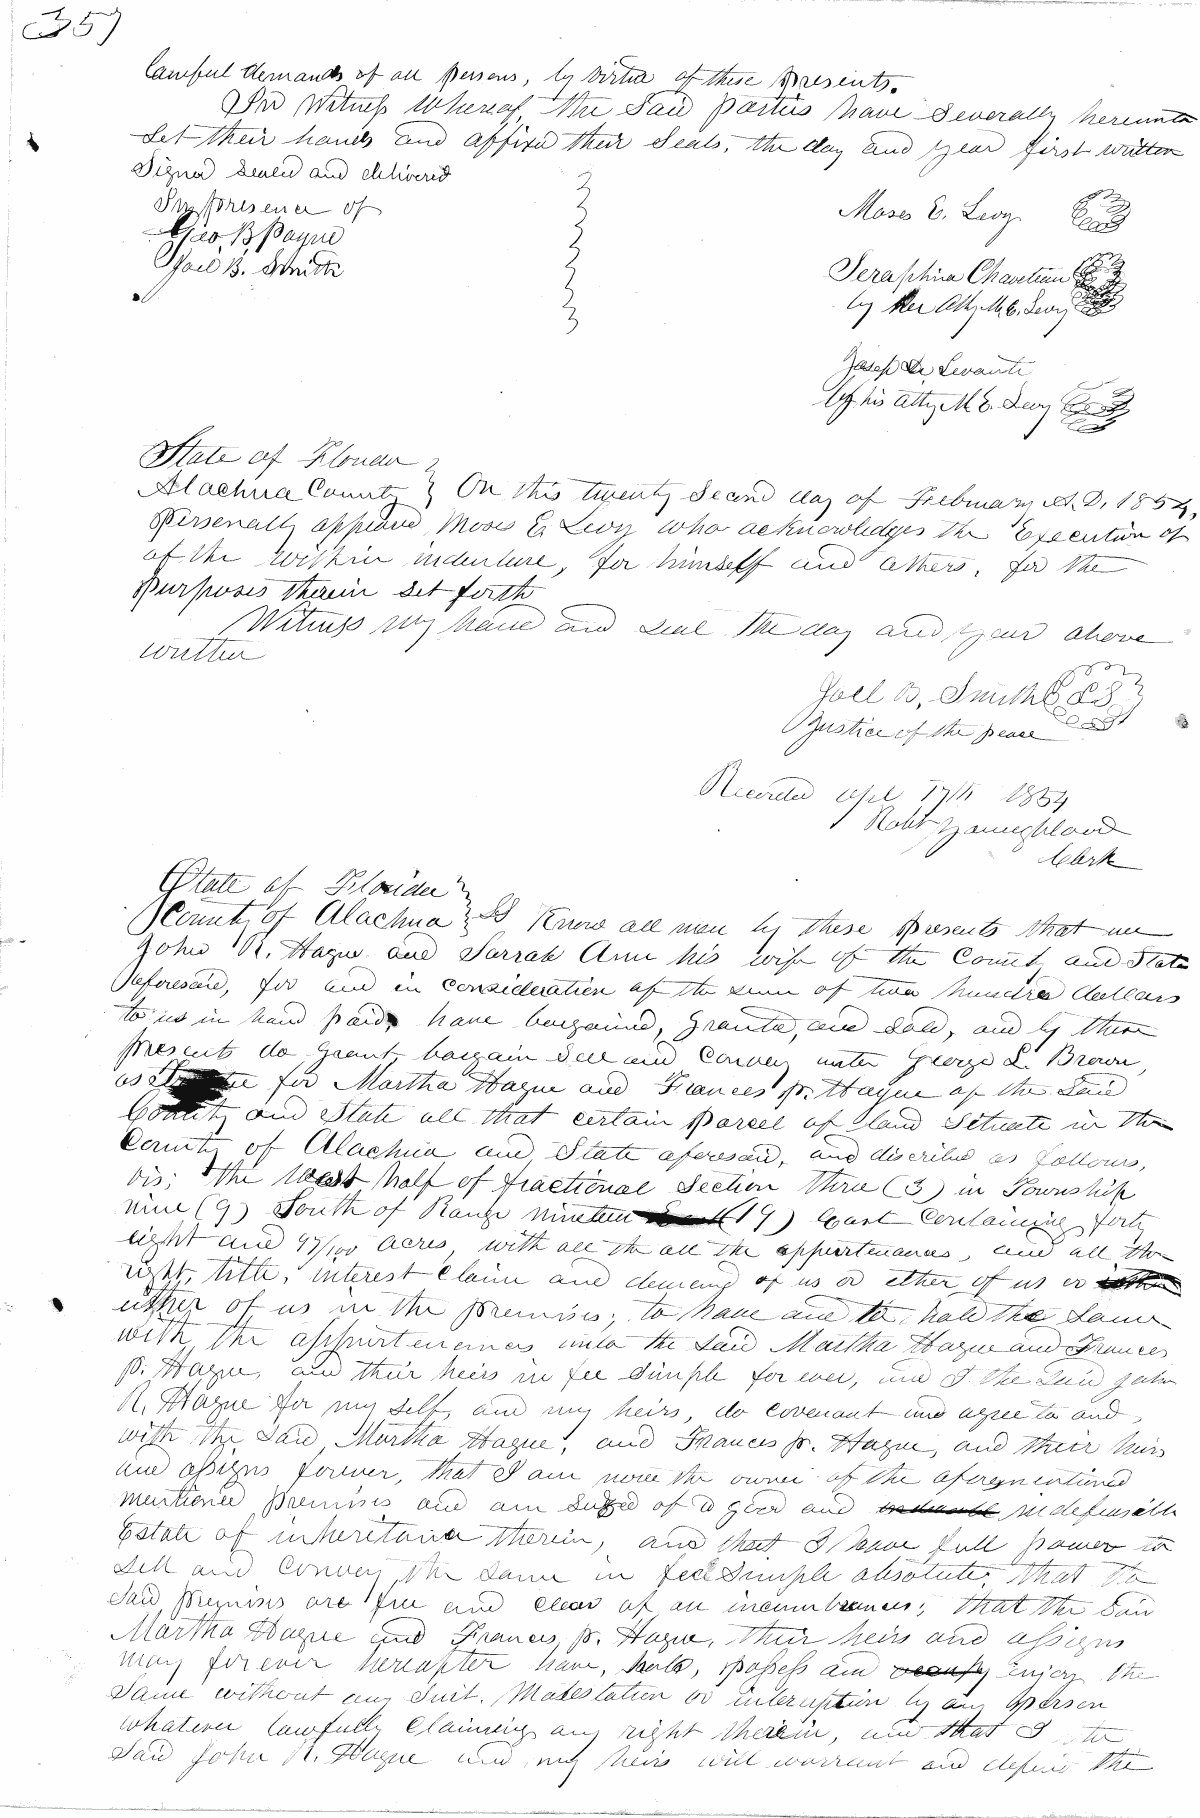 357
lawful demands of all persons, by virtue of these presents.
In Witness whereof, the Said parties have Severally hereunto
Set their hands and affixed their Seals, the day and year first written
Signed Sealed and delivered
In presence of
Geo B Payne
Joel B. Smith
Moses E. Levy
Seraphina Chaveteau
by her Atty M. E. Levy
Josep De Levante
by his atty M E. Levy
State of Florida
Alachua County } On this twenty Second day of Februrary A.D. 1854,
Personally appeared Moses E. Levy who acknowledges the Execution of
of the within indenture, for himself and others, for the
purposes therein set forth
Witness my hand and seal the day and year above
written
Joel B. Smith LS
Justice of the peace
Recorded apl 17th 1854
Robt Youngblood
Clerk
State of Florida
County of Alachua } SS Know all men by these presents that we
John R. Hague and Sarrah Ann his wife of the County and State
aforesaid, for and in consideration of the sum of two hundred dollars
to us in hand paid, have bargained, granted, and sold, and by these
presents do grant, bargain Sell and Convey unto George L. Brown,
as for Martha Hague and Frances P. Hague of the Said
County and State all that certain parcel of land Situate in the
County of Alachua and State aforesaid, and discribed as follows,
vis; the West half of fractional Section three (3) in Township
nine (9) South of Range nineteen (19) East Containing forty
eight and 97/100 acres, with all th all the appurtenances, and all the
right, title, interest Claim and demand of us or either of us or
either of us in the premises; to have and to hold the same
with the appurtenances unto the said Martha Hague and Frances
P. Hague, and their heirs in fee Simple for ever, and I the said John
R. Hague for my self, and my heirs, do covenant and agree to and
with the Said Martha Hague, and Frances P. Hague, and their heirs
and assigns forever, that I am now the owner of the aforementioned
mentioned premises and am seized of a good and indefeasible
Estate of inheritance therein, and that I have full power to
sell and convey the same in fee Simple absolute; that the
said premises are free and clear of all incumbrances; that the Said
Martha Hague and Frances P. Hague, their heirs and assigns
may forever hereafter have, hold, possess and occupy enjoy the
same without any Suit. Molestation or interuption by any person
whatever lawfully Claiming any right therein, and that I the
Said John R. Hague and my heirs will warrant and defend the